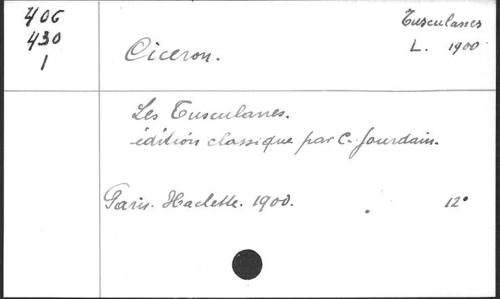 406
430
1
Tusculanes
L. 1900
Ciceron.
Les Tusculanes.
édition classique par C. Jourdain.
Paris. Hachette. 1900. 12°